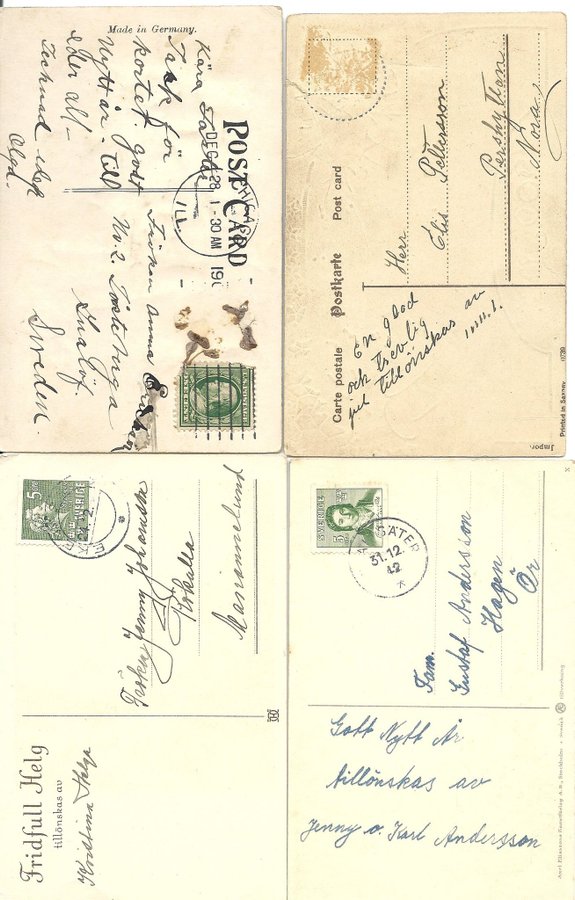 Made in Germany.
POST CARD
Kära Faster
Tack för
kortet godt
Nytt år till
eder all-
Tecknad
DEC 28
1-30 AM
ILL.
Fröken Anna
No 2. Tosteberga
Sweden.
Carte postale Postkarte Post card
Herr
Elis Pettersson
Pershyttan
Nora
En god
och trevlig
jul tillönskas av
Jmpor.
Printed in Saxony.
0739
5
SVERIGE
Jenny Johansson
Rökulla
Mariannelund
Fridfull Helg
tillönskas av
Kristina Helge
SVERIGE
5
31.12.
42
Fam.
Gustaf Andersson
Hagen
Ör
Gott Nytt År
tillönskas av
Jenny o. Karl Andersson
Axel Eliassons Konstförlag A.B., Stockholm